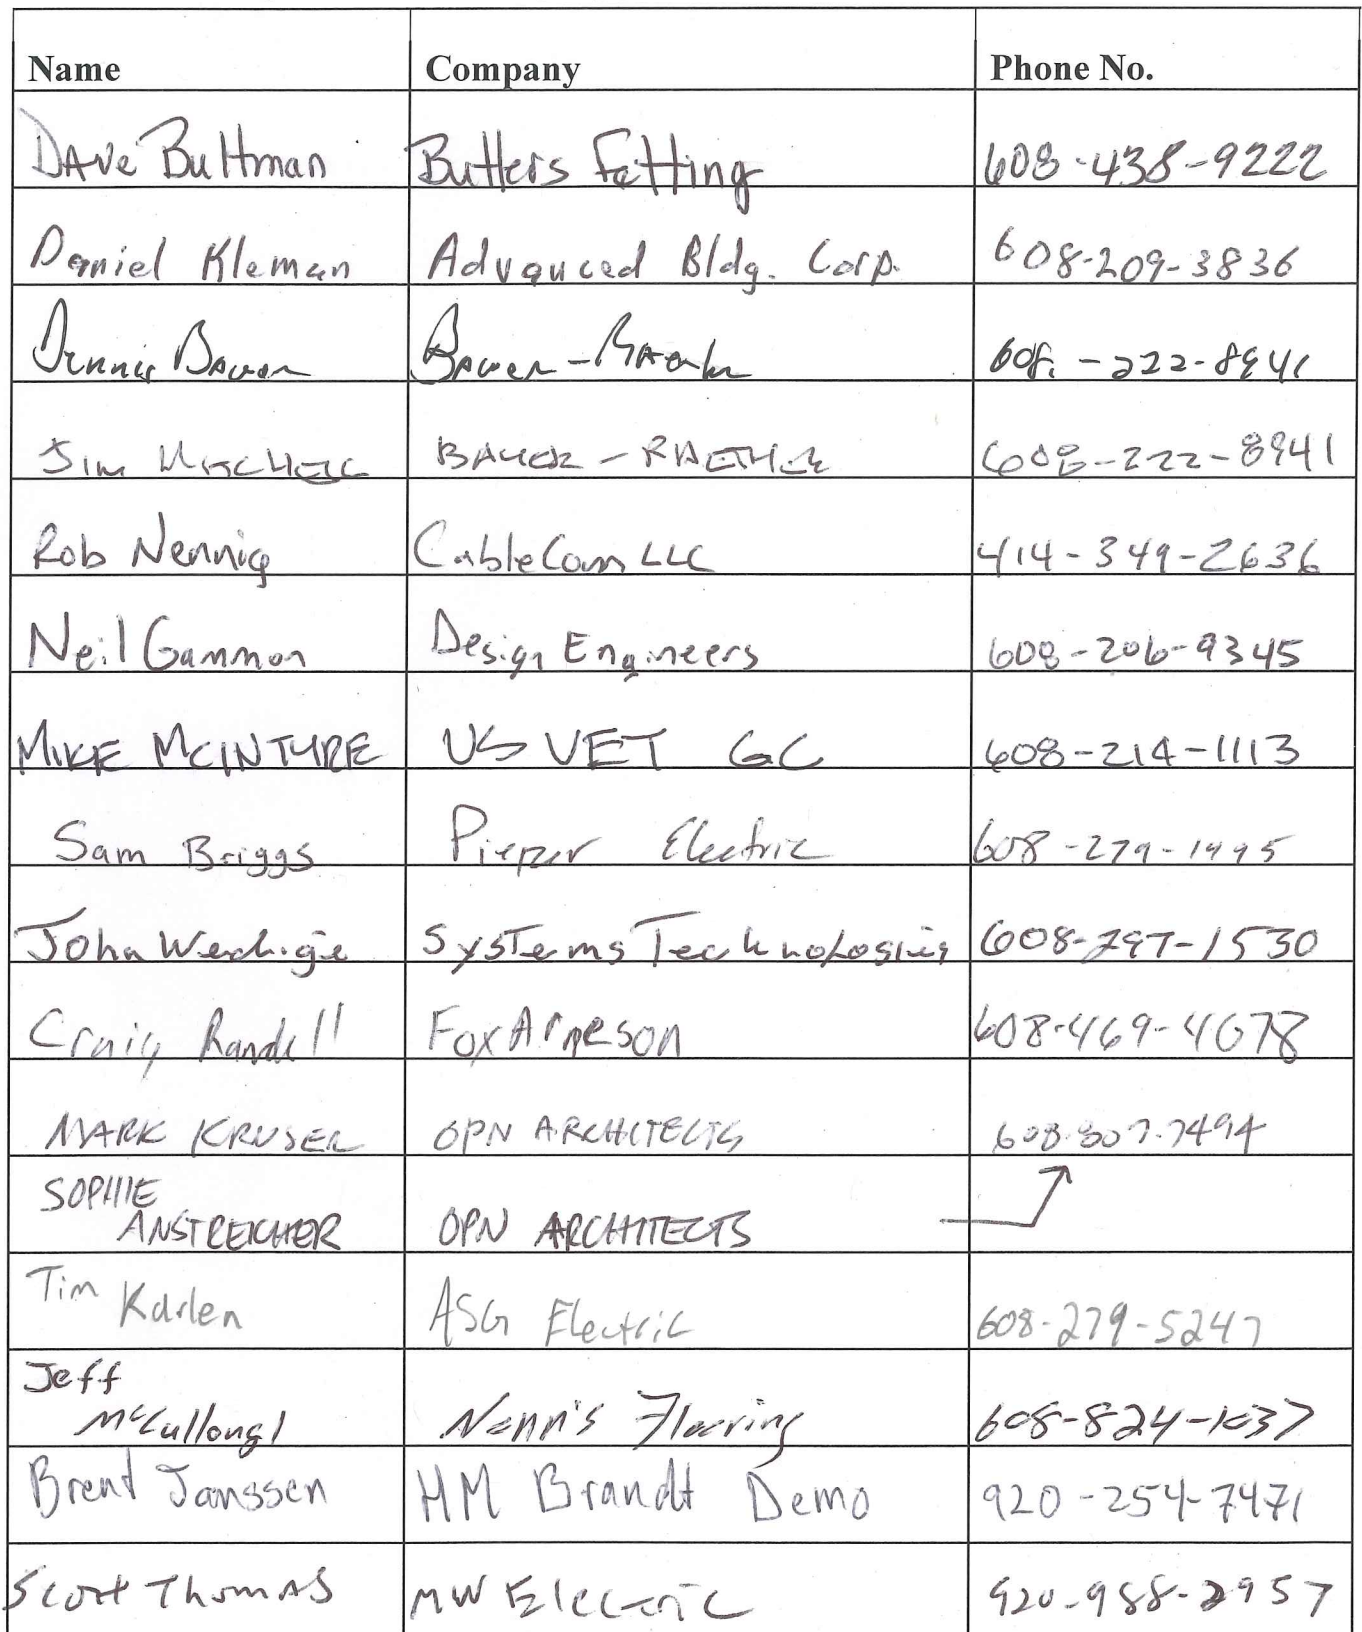 Name Company Phone No.
Dave Bultman Butters Fetting 608-438-9222
Daniel Kleman Advanced Bldg. Corp. 608-209-3836
Dennis Bauer Bauer-Raether 608-222-8941
Jim Mitchell BAUER-RAETHER 608-222-8941
Rob Nennig CableCom LLC 414-349-2636
Neil Gammon Design Engineers 608-206-9345
MIKE MCINTYRE US VET GC 608-214-1113
Sam Briggs Pieper Electric 608-279-1995
John Systems Technologies 608-297-1530
Craig Randall Fox Arneson 608-469-4078
MARK KRUSER OPN ARCHITECTS 608.807.7494
SOPHIE
ANSTREICHER OPN ARCHITECTS
Tim Karlen ASG Electric 608-279-5247
Jeff
McCullough Nonn's Flooring 608-824-1037
Brent Janssen HM Brandt Demo 920-254-7471
Scott Thomas MW Electric 920-988-2957